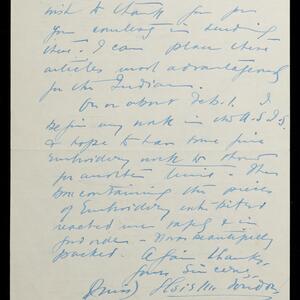 wish to thank you for
your courtesy in sending
these. I can place these
articles most advantageously
for the Indians.
On or about Feb. 1. I
begin my work in the U.S.I.S.
& hope to have some fine
Embroidery work to show
you another time. The
box containing the pieces
of Embroidery exhibited
reached me safely & in
good order. Was beautifully
packed. Again thanks,
Yours Sincerely,
(Miss)